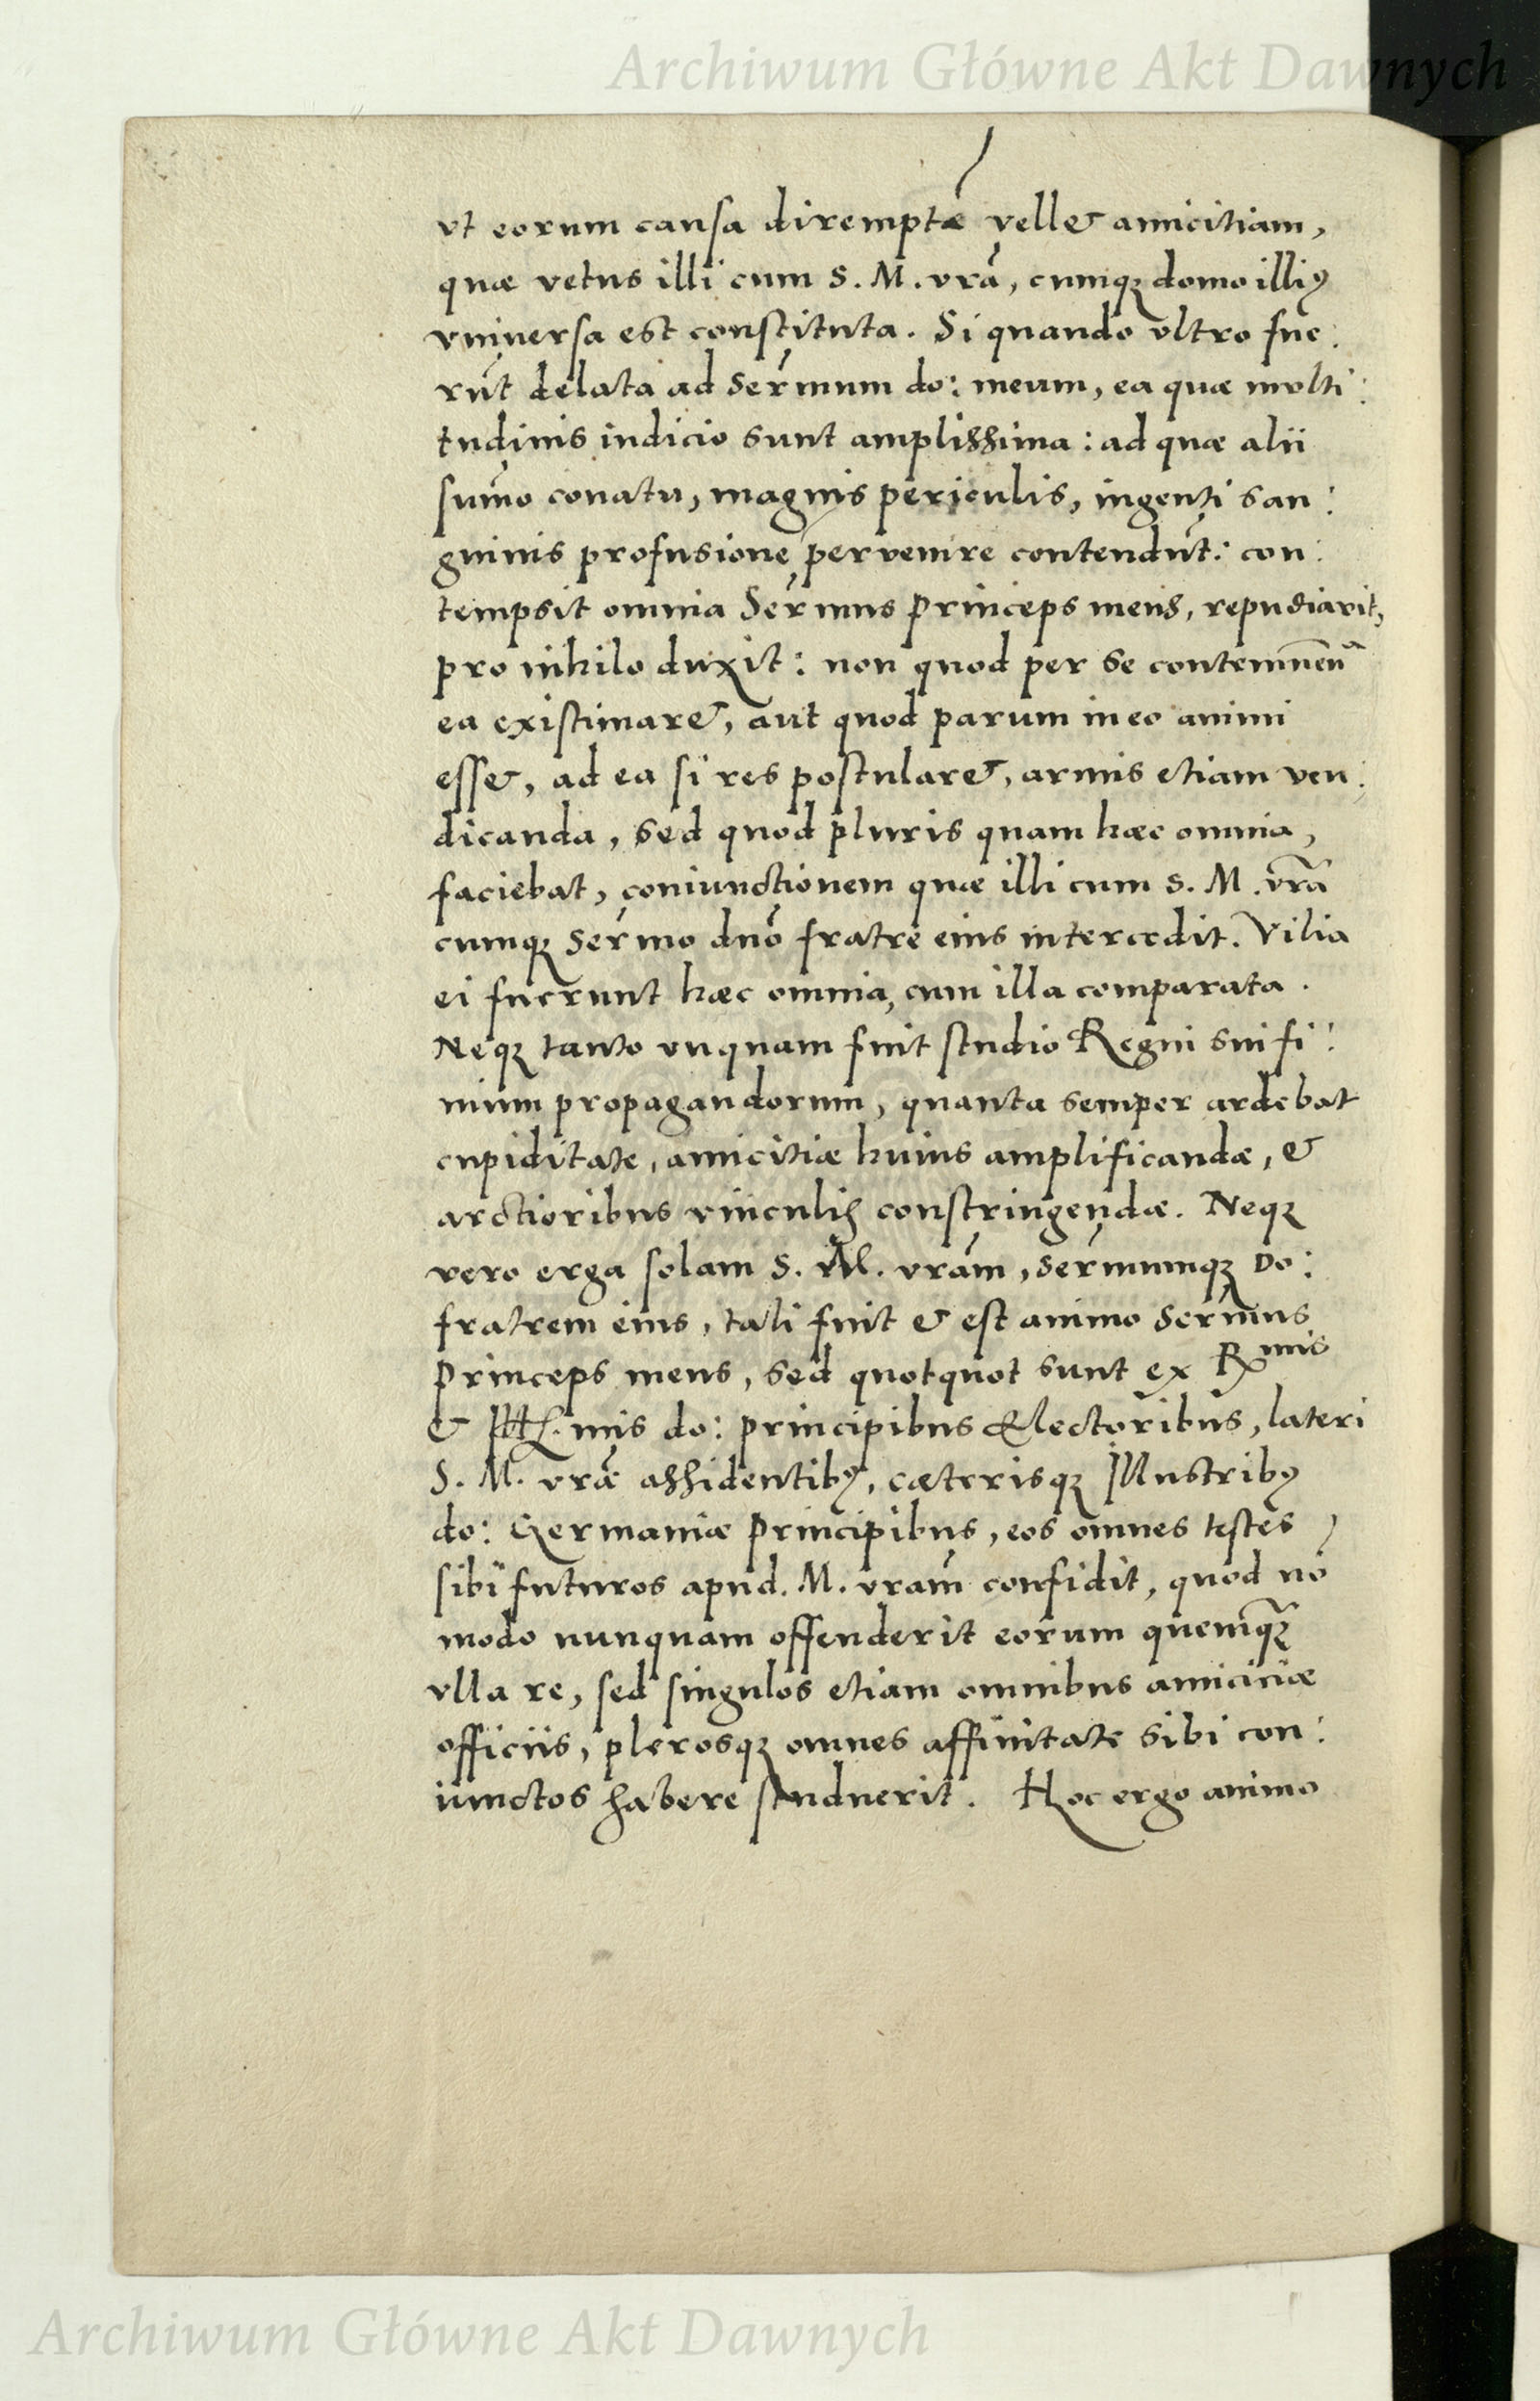 Archiwum Główne Akt Dawnych
vt eorum causa diremptã vellet amicitiam,
quæ vetus illi cum S. M. vrã, cumq; domo illi9
vniuersa est constituta. Si quando vltro fue:
rũt delata ad Serm̃um do: meum, ea quæ multi:
tudinis iudicio sunt amplissima: ad quæ alii
sum̃o conatu, magnis periculis, ingenti san:
guinis profusione peruenire contendũt: con:
tempsit omnia Serm̃us Princeps meus, repudiavit,
pro nihilo duxit: non quod per se contemnẽna
ea existimaret, aut quod parum in eo animi
esset, ad ea si res postularet, armis etiam ven:
dicanda, sed quod pluris quam hæc omnia,
faciebat, coniunctionem quæ illi cum S. M. vrã
cumq; Serm̃o dnõ fratre eius intercedit. Vilia
ei fuerunt hæc omnia, cum illa comparata.
Neq; tanto vnquam fuit studio Regni sui fi:
nium propagandorum, quanta semper ardebat
cupiditate, amicitiæ huius amplificandæ, &
arctioribus vinculis constringendæ. Neq;
vero erga solam S. M. vrãm, Serm̃umq; Do:
fratrem eius, tali fuit & est animo Serm̃us
Princeps meus, sed quotquot sunt ex Rmis
& Ill. mis do: Principibus Electoribus, lateri
S. M. vræ̃ assidentib9, cæterisq; Illustrib9
do: Germaniæ Principibus, eos omnes testes
sibi futuros apud. M. vrãm confidit, quod nõ
modo nunquam offenderit eorum quemq;
vlla re, sed singulos etiam omnibus amiciciæ
officiis, plerosq; omnes affinitate sibi con:
iunctos habere studuerit. Hoc ergo animo
Archiwum Główne Akt Dawnych